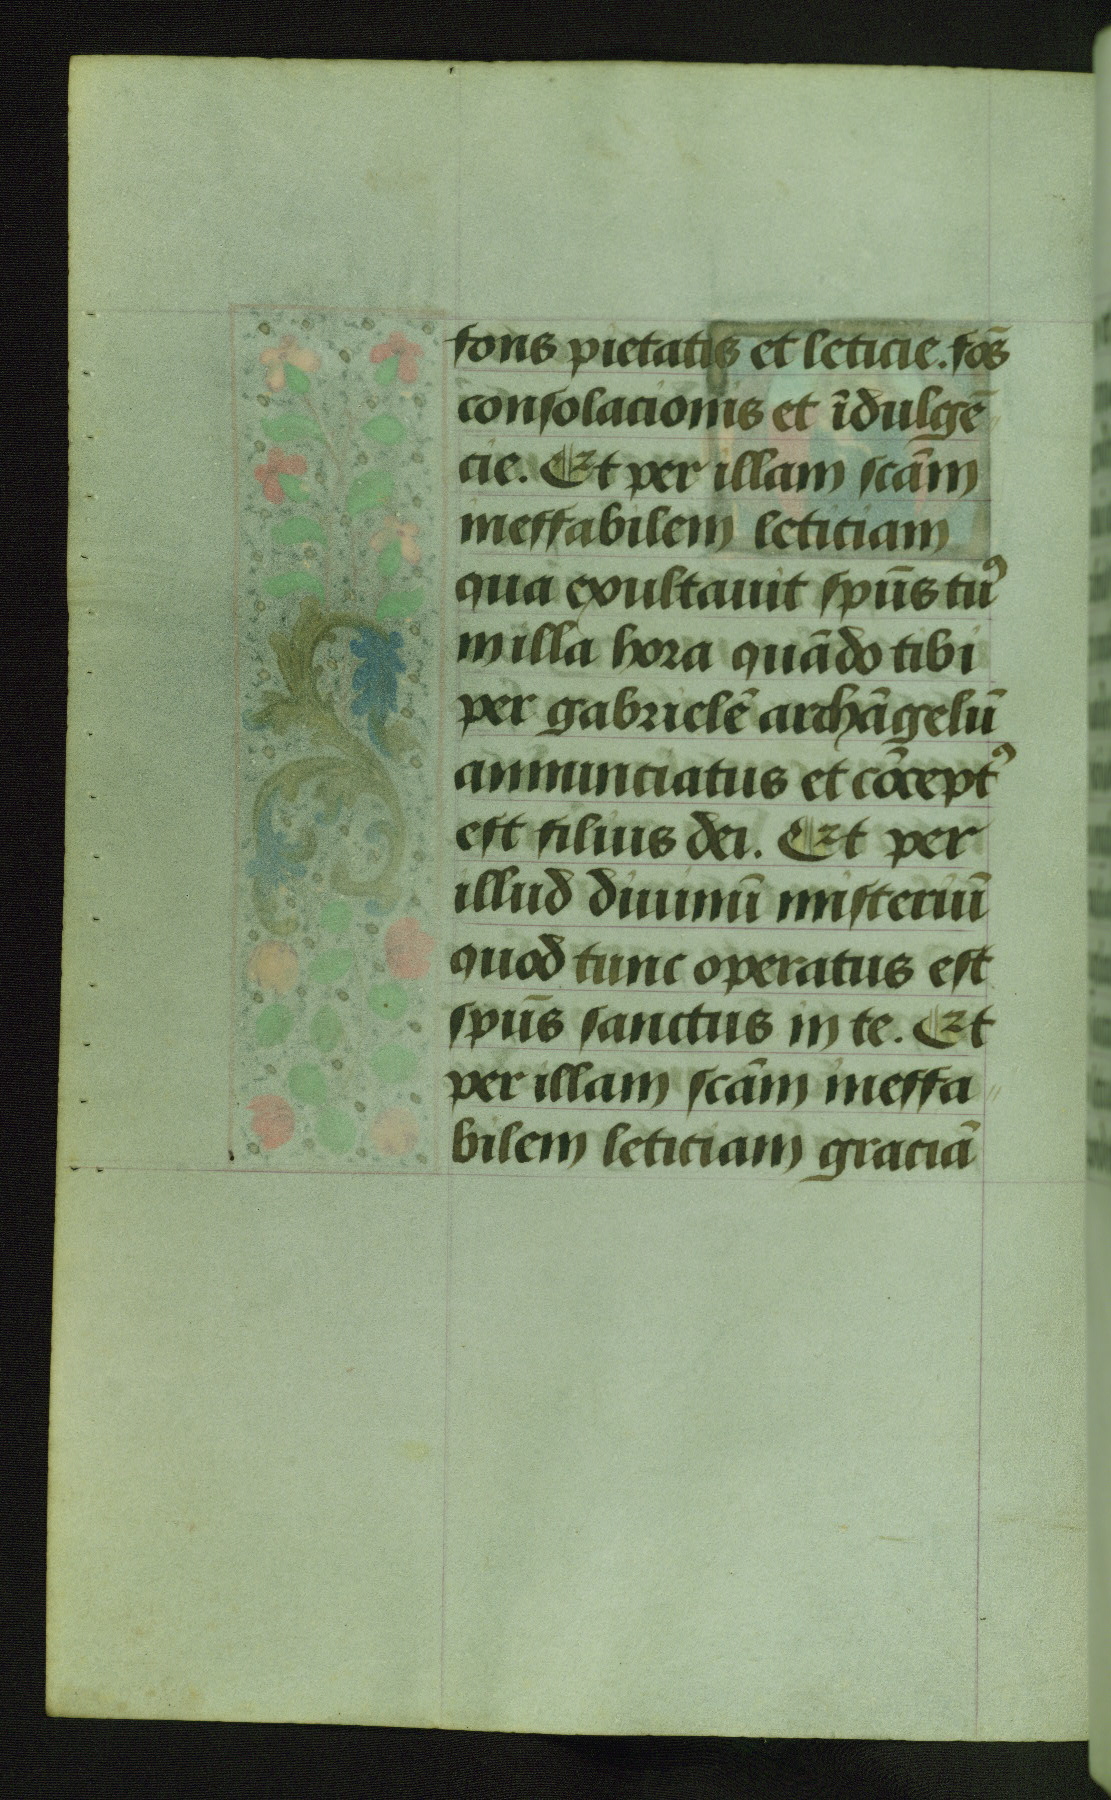 fons pietatis et leticie. fōs
consolacionis et īdulgē
cie. Et per illam scām
ineffabilem leticiam
qua exultauit spūs tuꝰ
in illa hora quādo tibi
per gabrielē archāgelū
annunciatus et cōceptꝰ
est filius dei. Et per
illud diuinū misteriū
quod tunc operatus est
spūs sanctus in te. Et
per illam scām ineffa
bilem leticiam graciā